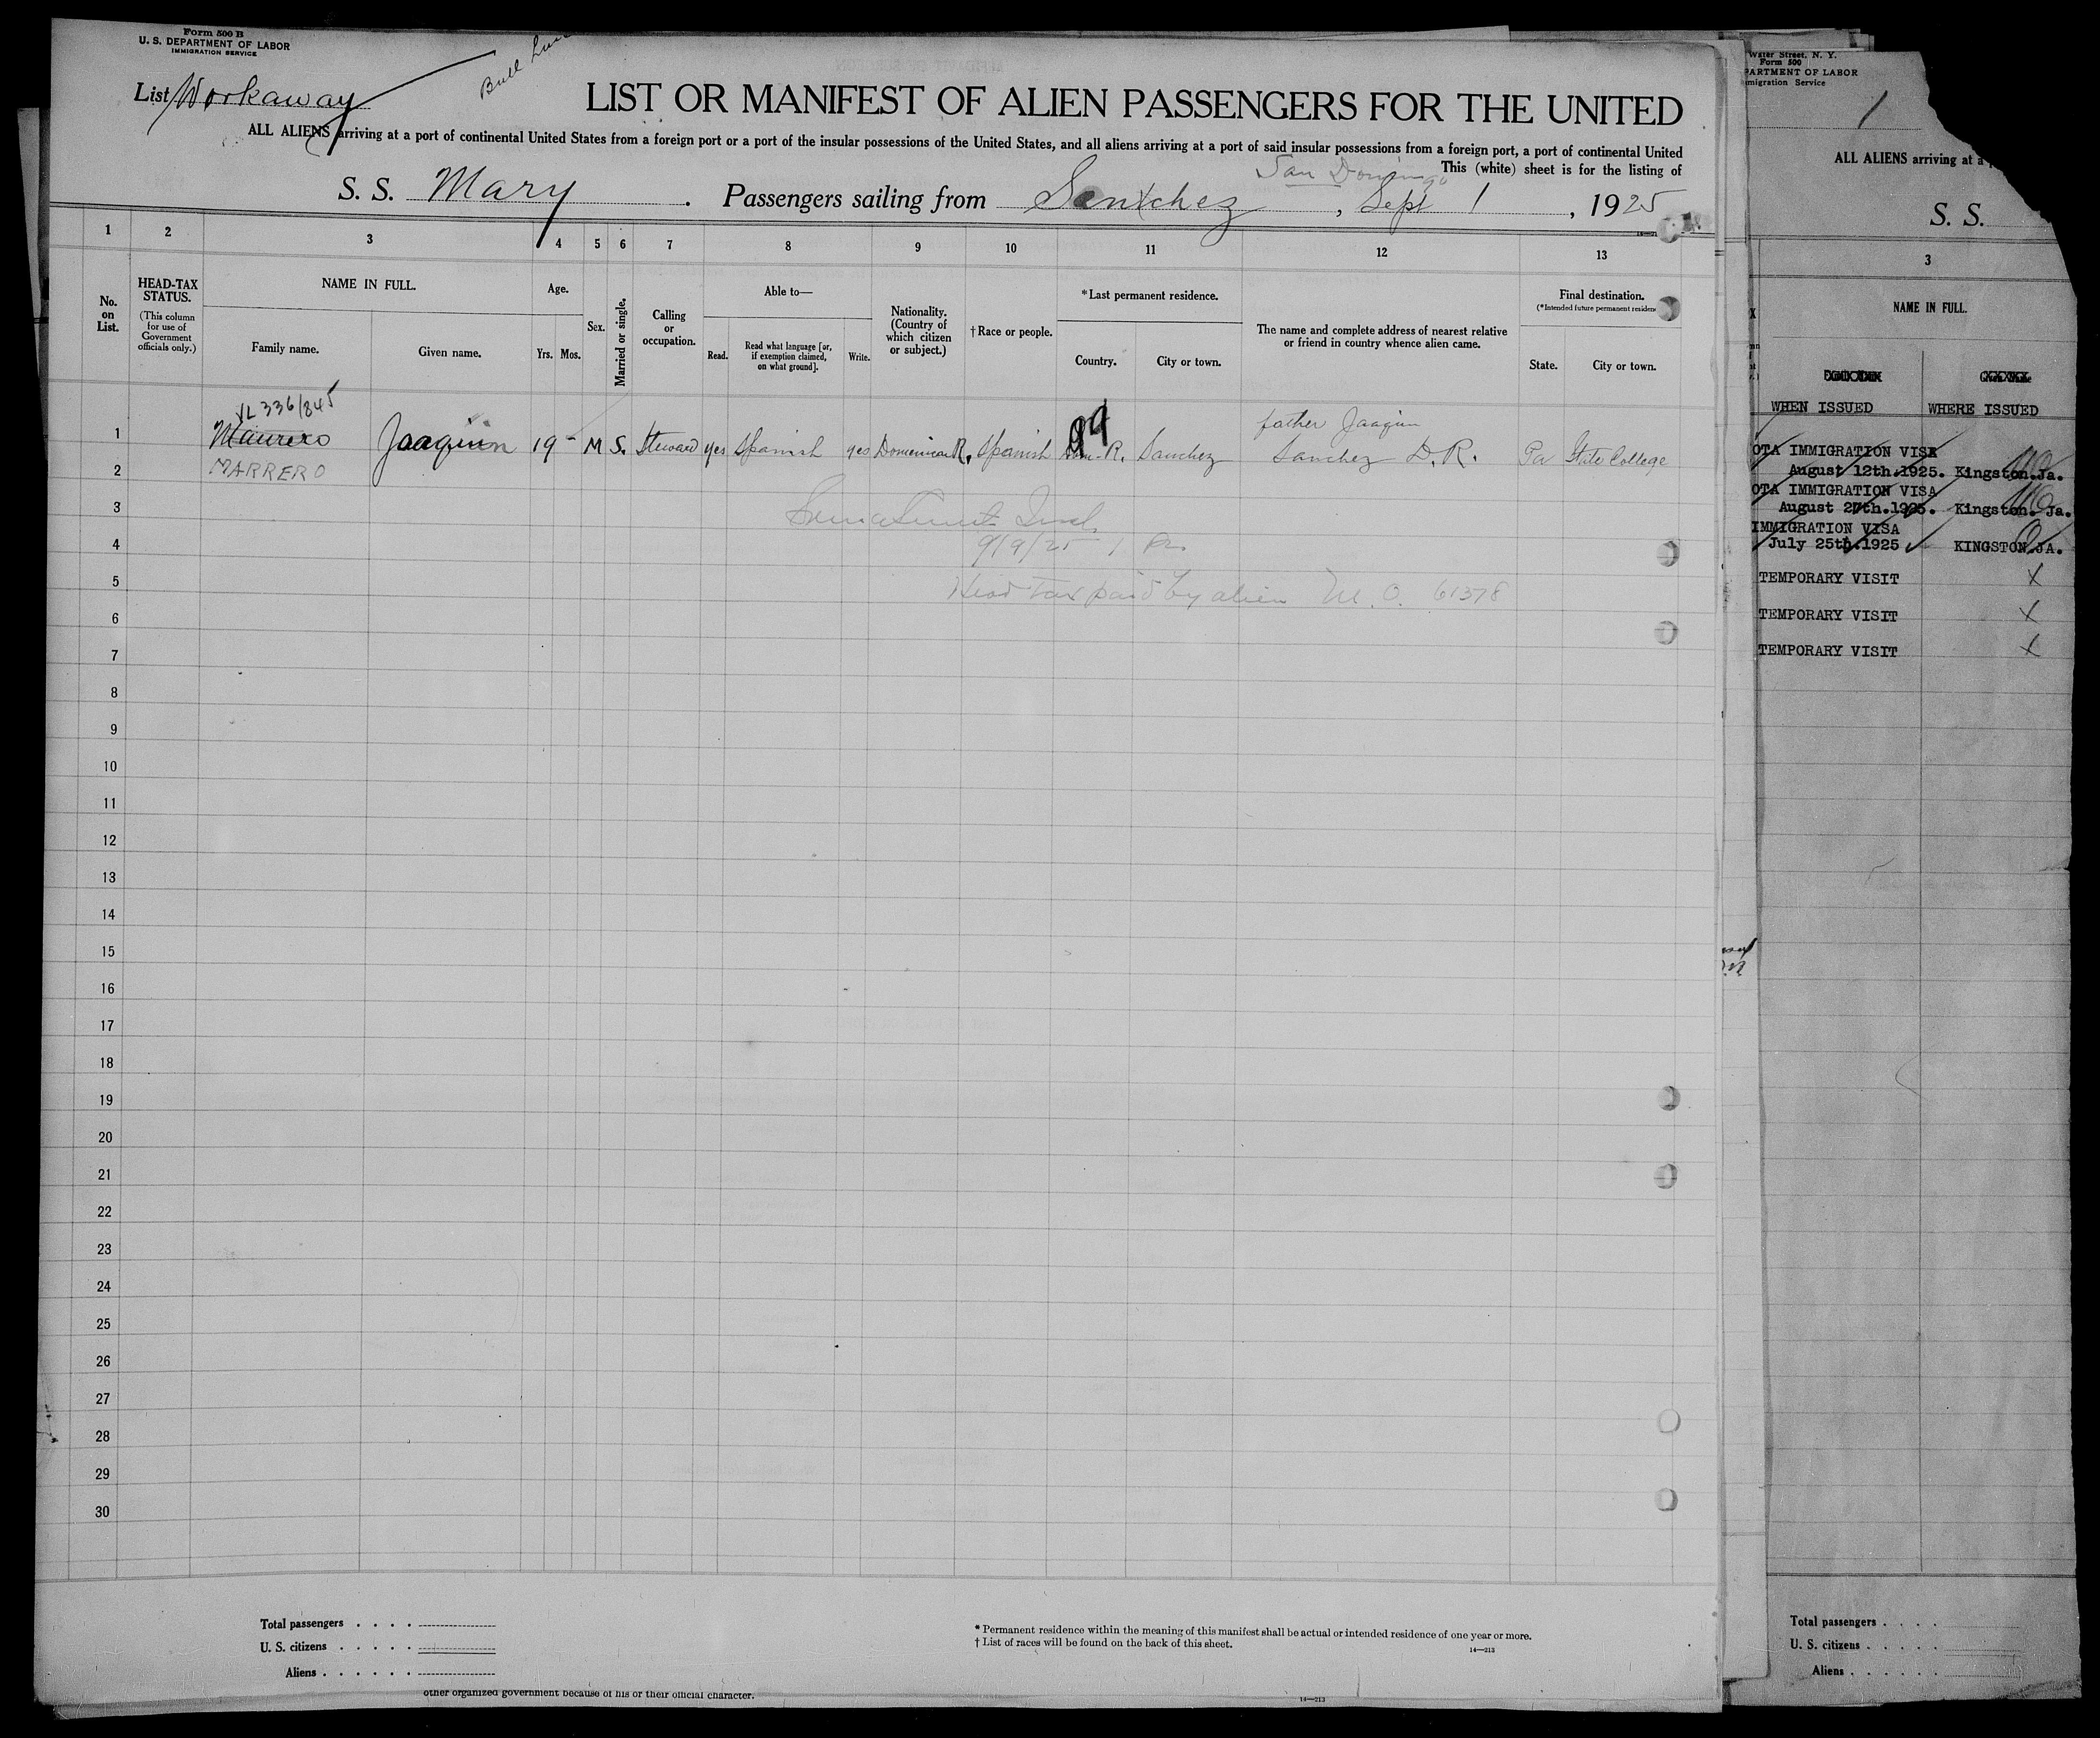 Form 500 B
U. S. DEPARTMENT OF LABOR
IMMIGRATION SERVICE
List Workaway
Bull Line
LIST OR MANIFEST OF ALIEN PASSENGERS FOR THE UNITED
ALL ALIENS arriving at a port of continental United States from a foreign port or a port of the insular possessions of the United States, and all aliens arriving at a port of said insular possessions from a foreign port, a port of continental United
This (white) sheet is for the listing of
San Domingo
S. S. Mary . Passengers sailing from Sanchez , Sept 1 , 1925
1 2 3 4 5 6 7 8 9 10 11 12 13
No. on List.
HEAD-TAX STATUS.
(This column for use of Government officials only.)
NAME IN FULL.
Family name. Given name.
Age.
Yrs. Mos.
Sex.
Married or single.
Calling or occupation.
Able to—
Read. Read what language [or, if exemption claimed, on what ground]. Write.
Nationality. (Country of which citizen or subject.)
† Race or people.
* Last permanent residence.
Country. City or town.
The name and complete address of nearest relative or friend in country whence alien came.
Final destination.
(* Intended future permanent residen
State. City or town.
VL 336/845
1 Maurero Joaquin 19 - M S. Steward yes Spanish yes Dominican R. Spanish Dom. R. Sanchez father Joaquin
Sanchez D.R. Pa State College
2 MARRERO
3
4 9/9/25 1
5 Head Tax paid by alien M. O. 61378
6
7
8
9
10
11
12
13
14
15
16
17
18
19
20
21
22
23
24
25
26
27
28
29
30
Total passengers . . . .
U. S. citizens . . . . .
Aliens . . . . . .
* Permanent residence within the meaning of this manifest shall be actual or intended residence of one year or more.
† List of races will be found on the back of this sheet.
14—213
other organized government because of his or their official character.
14—213
Water Street, N. Y.
Form 500
PARTMENT OF LABOR
mmigration Service
1
ALL ALIENS arriving at a
S. S.
3
NAME IN FULL.
WHEN ISSUED WHERE ISSUED
OTA IMMIGRATION VISA
August 12th.1925. Kingston.Ja.
OTA IMMIGRATION VISA
August 27th.1925. Kingston. Ja.
IMMIGRATION VISA
July 25th.1925 KINGSTON.JA.
TEMPORARY VISIT X
TEMPORARY VISIT X
TEMPORARY VISIT X
Total passengers . . . .
U. S. citizens . . . . .
Aliens . . . . . .